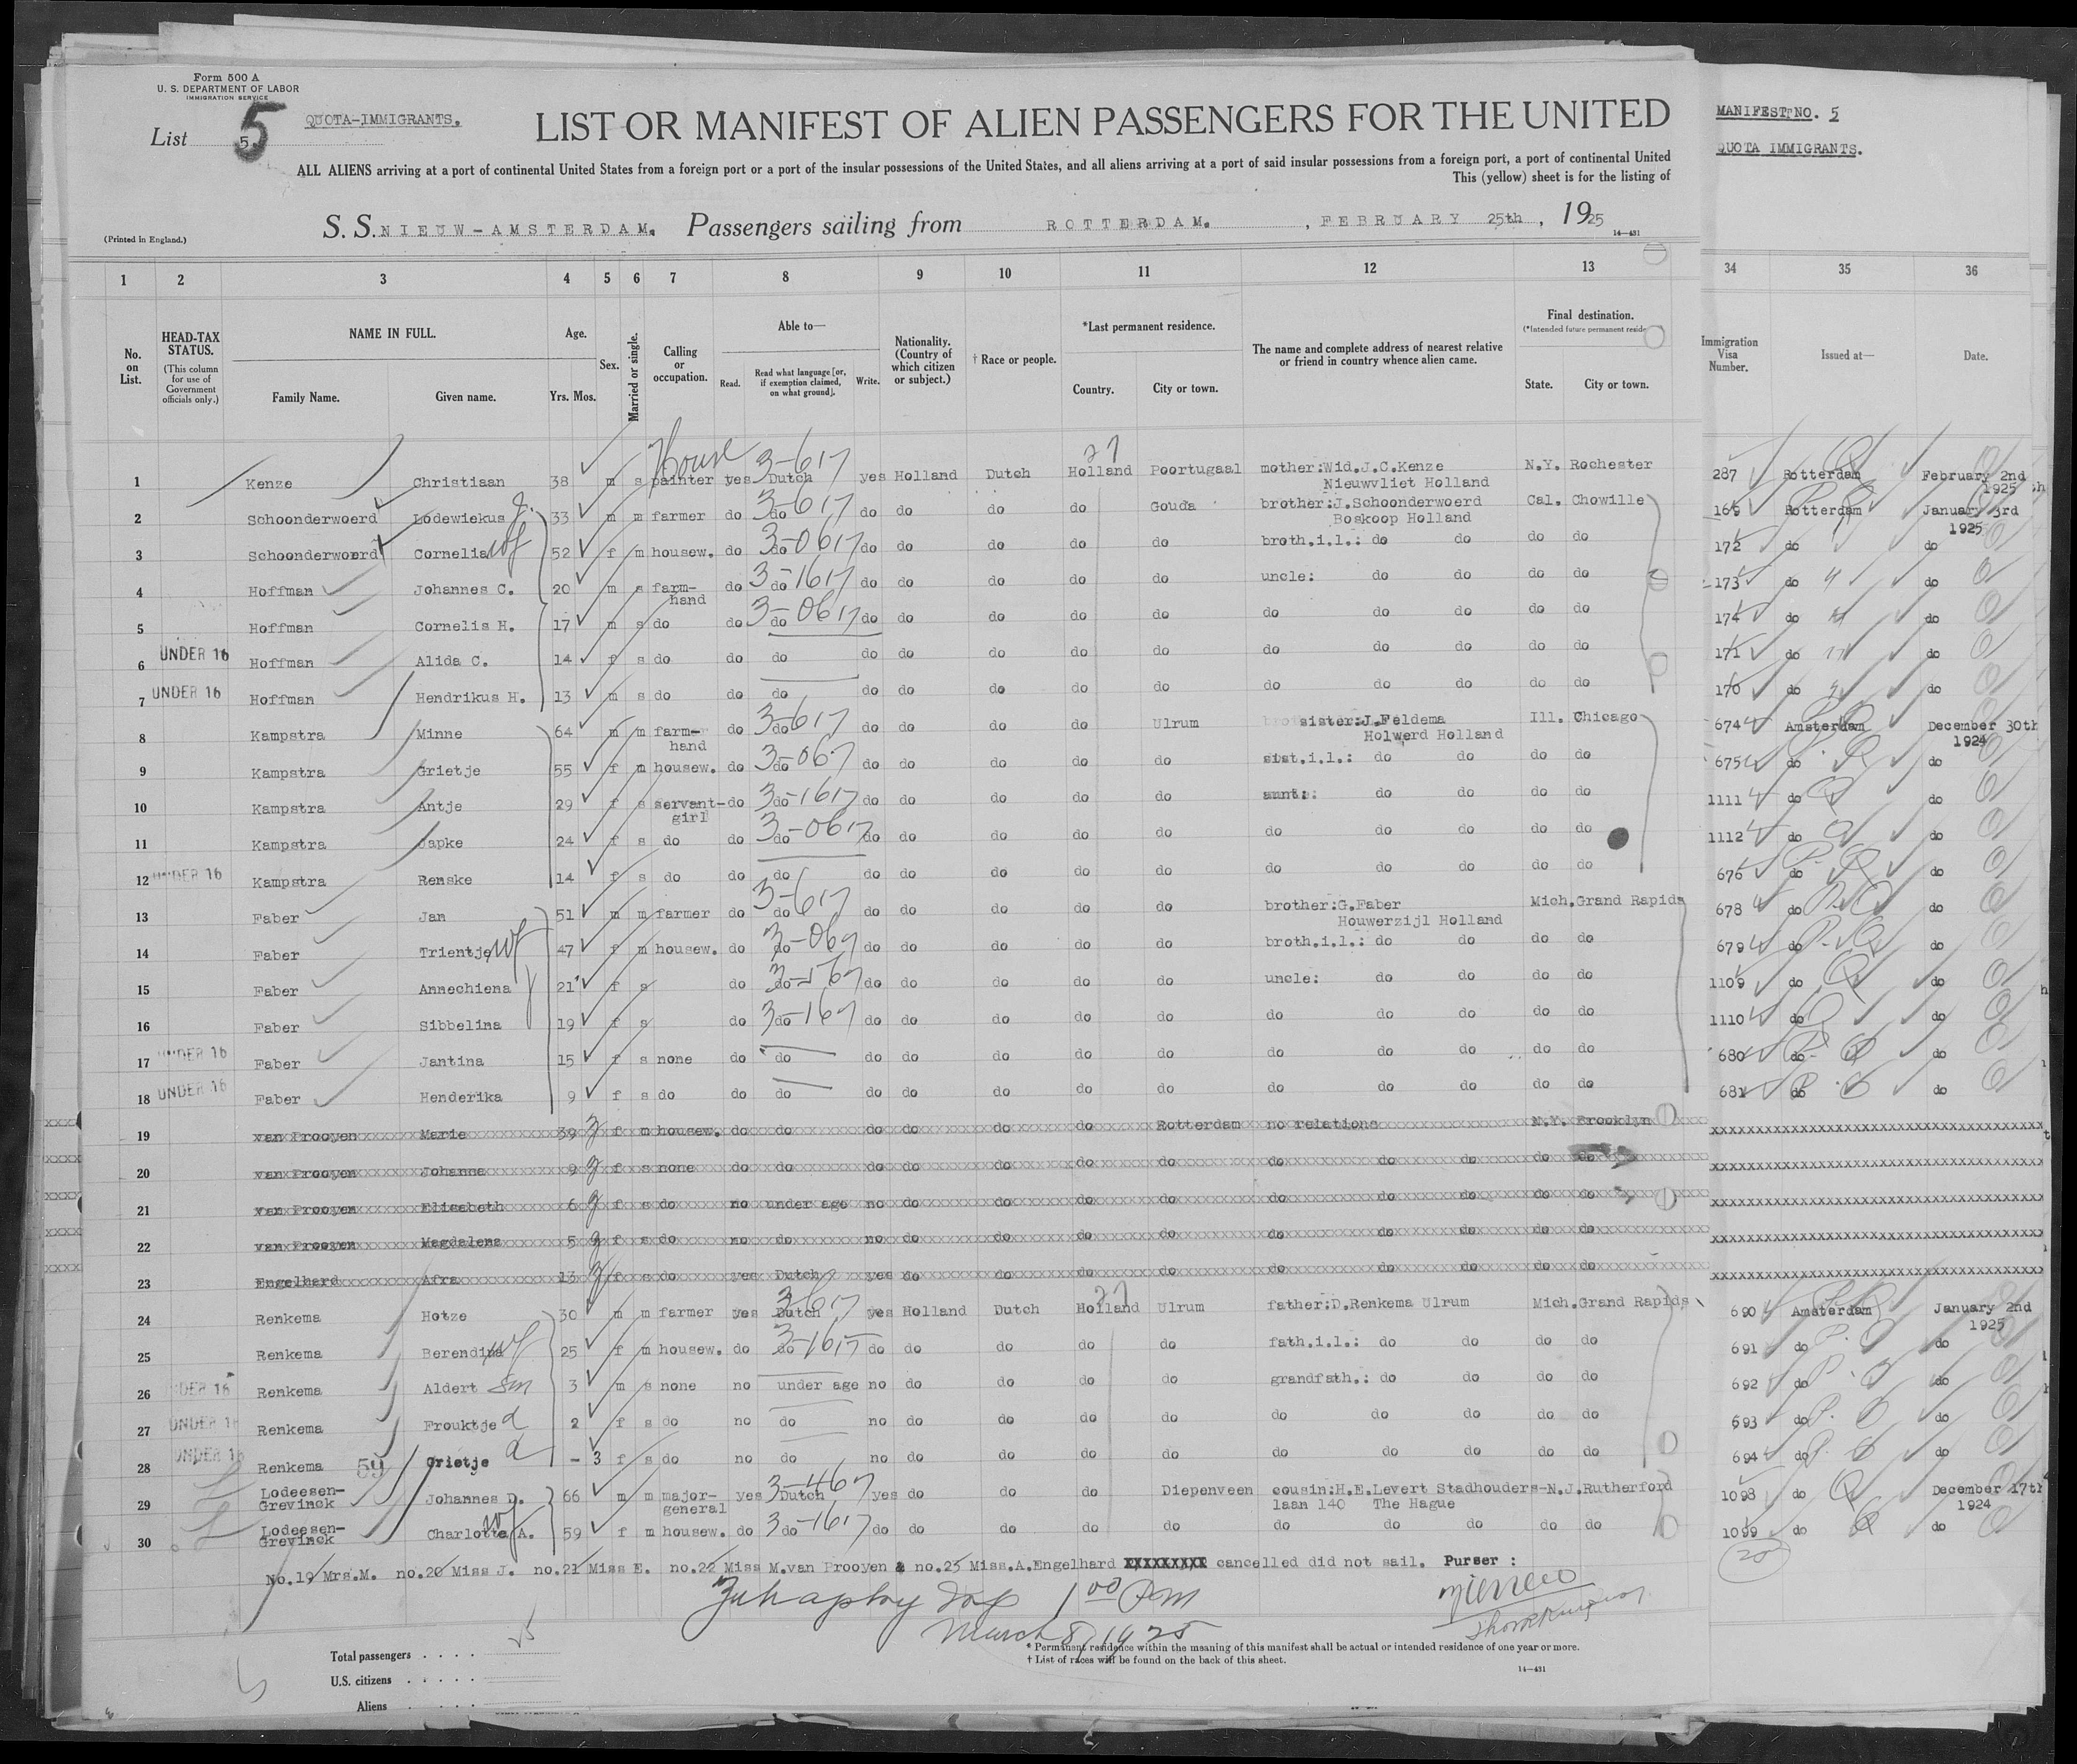 Form 500 A
U. S. DEPARTMENT OF LABOR
IMMIGRATION SERVICE
List 5. 5 QUOTA-IMMIGRANTS.
LIST OR MANIFEST OF ALIEN PASSENGERS FOR THE UNITED
ALL ALIENS arriving at a port of continental United States from a foreign port or a port of the insular possessions of the United States, and all aliens arriving at a port of said insular possessions from a foreign port, a port of continental United
This (yellow) sheet is for the listing of
S. S. NIEUW-AMSTERDAM. Passengers sailing from ROTTERDAM. , FEBRUARY 25th , 1925
(Printed in England.)
14—431
MANIFEST NO. 5
QUOTA IMMIGRANTS.
1 2 3 4 5 6 7 8 9 10 11 12 13 34 35 36
No. on List.
HEAD-TAX STATUS. (This column for use of Government officials only.)
NAME IN FULL.
Family Name. Given name.
Age. Yrs. Mos.
Sex.
Married or single.
Calling or occupation.
Able to—
Read. Read what language [or, if exemption claimed, on what ground]. Write.
Nationality. (Country of which citizen or subject.)
† Race or people.
*Last permanent residence.
Country. City or town.
The name and complete address of nearest relative or friend in country whence alien came.
Final destination.
(*Intended future permanent reside
State. City or town.
Immigration Visa Number.
Issued at—
Date.
1 Kenze Christiaan 38 m s House painter yes 3-617 Dutch yes Holland Dutch 27 Holland Poortugaal mother:Wid.J.C.Kenze Nieuwvliet Holland N.Y. Rochester 287 Rotterdam February 2nd 1925
2 Schoonderwoerd Lodewiekus J. 33 m m farmer do 3-617 do do do do do Gouda brother:J.Schoonderwoerd Boskoop Holland Cal. Chowille 169 Rotterdam January 3rd 1925
3 Schoonderwoerd Cornelia wf 52 f m housew. do 3-0617 do do do do do do broth.i.l.: do do do do 172 do do
4 Hoffman Johannes C. 20 m s farm-hand do 3-1617 do do do do do do uncle: do do do do 173 do do
5 Hoffman Cornelis H. 17 m s do do 3-0617 do do do do do do do do do do do 174 do do
6 UNDER 16 Hoffman Alida C. 14 f s do do do do do do do do do do do do do 171 do do
7 UNDER 16 Hoffman Hendrikus H. 13 m s do do do do do do do do do do do do do 170 do do
8 Kampstra Minne 64 m m farm-hand do 3-617 do do do do do Ulrum sister:J.Feldema Holwerd Holland Ill. Chicago 674 Amsterdam December 30th 1924
9 Kampstra Grietje 55 f m housew. do 3-067 do do do do do do sist.i.l.: do do do do 675 do do
10 Kampstra Antje 29 f s servant-girl do 3-1617 do do do do do do aunt: do do do do 1111 do do
11 Kampstra Japke 24 f s do do 3-0617 do do do do do do do do do do do 1112 do do
12 UNDER 16 Kampstra Renske 14 f s do do do do do do do do do do do do do 676 do do
13 Faber Jan 51 m m farmer do 3-617 do do do do do do brother:G.Faber Houwerzijl Holland Mich. Grand Rapids 678 do do
14 Faber Trientje wf 47 f m housew. do 3-067 do do do do do do broth.i.l.: do do do do 679 do do
15 Faber Annechiena 21 f s do 3-167 do do do do do do uncle: do do do do 1109 do do
16 Faber Sibbelina 19 f s do 3-167 do do do do do do do do do do do 1110 do do
17 UNDER 16 Faber Jantina 15 f s none do do do do do do do do do do do do 680 do do
18 UNDER 16 Faber Henderika 9 f s do do do do do do do do do do do do do 681 do do
19 van Prooyen Marie 39 f m housew. do do do do do do Rotterdam no relations N.Y. Brooklyn
20 van Prooyen Johanna 9 f s none do do do do do do do do do do do do
21 van Prooyen Elisabeth 6 f s do no under age no do do do do do do do do do
22 van Prooyen Magdalena 5 f s do no do no do do do do do do do do do
23 Engelhard Afra 13 f s do yes Dutch yes do do do do do do do do do
24 Renkema Hotze 30 m m farmer yes 3617 Dutch yes Holland Dutch 27 Holland Ulrum father:D.Renkema Ulrum Mich. Grand Rapids 690 Amsterdam January 2nd 1925
25 Renkema Berendina wf 25 f m housew. do 3-1617 do do do do do do fath.i.l.: do do do do 691 do do
26 UNDER 16 Renkema Aldert son 3 m s none no under age no do do do do grandfath.: do do do do 692 do do
27 UNDER 16 Renkema Frouktje d 2 f s do no do no do do do do do do do do do 693 do do
28 UNDER 16 Renkema 59 Grietje d – 3 f s do no do no do do do do do do do do do 694 do do
29 Lodeesen-Grevinck Johannes D. 66 m m major-general yes 3-467 Dutch yes do do do Diepenveen cousin:H.E.Levert Stadhouders-laan 140 The Hague N.J. Rutherford 1098 do December 17th 1924
30 Lodeesen-Grevinck Charlotte A. wf 59 f m housew. do 3-1617 do do do do do do do do do do do 1099 do do
No.19 Mrs.M. no.20 Miss J. no.21 Miss E. no.22 Miss M.van Prooyen & no.23 Miss.A.Engelhard XXXXXXXXX cancelled did not sail. Purser :
1 00 Pm
March 8, 1925
* Permanent residence within the meaning of this manifest shall be actual or intended residence of one year or more.
† List of races will be found on the back of this sheet.
14—431
Total passengers . . . . 25
U.S. citizens . . . . .
Aliens . . . .